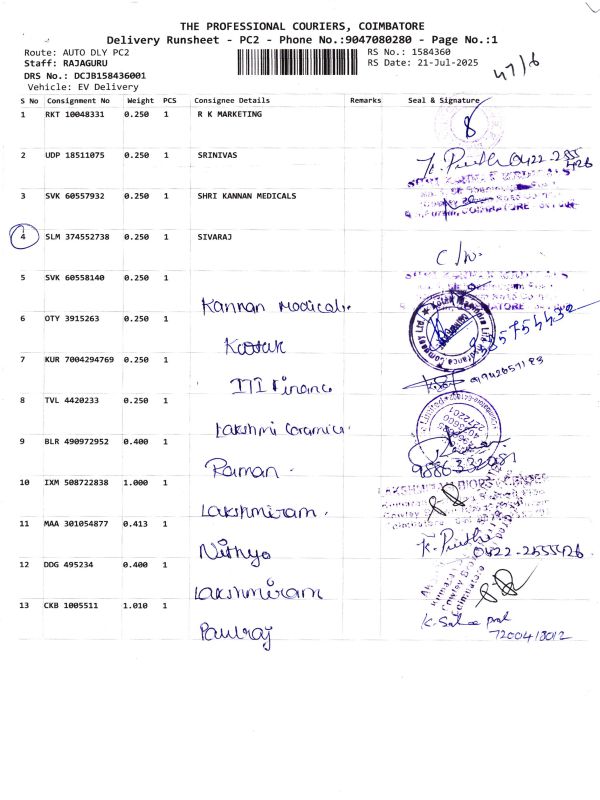 THE PROFESSIONAL COURIERS, COIMBATORE
Delivery Runsheet - PC2 - Phone No.:9047080280 - Page No.:1
Route: AUTO DLY PC2
RS No.: 1584360
Staff: RAJAGURU
RS Date: 21-Jul-2025
DRS No.: DCJB158436001
Vehicle: EV Delivery
47/6
S No Consignment No Weight PCS Consignee Details Remarks Seal & Signature
1 RKT 10048331 0.250 1 R K MARKETING
8
2 UDP 18511075 0.250 1 SRINIVAS
0422-255
3 SVK 60557932 0.250 1 SHRI KANNAN MEDICALS
4 SLM 374552738 0.250 1 SIVARAJ
5 SVK 60558140 0.250 1 Kannan Medicals
6 OTY 3915263 0.250 1 Kotak
7 KUR 7004294769 0.250 1 ITI Finance
8 TVL 4420233 0.250 1 Lakshmi Ceramics
9 BLR 490972952 0.400 1 Raman
10 IXM 508722838 1.000 1 Lakshmiram
11 MAA 301054877 0.413 1 Nithya
0422-2555426
12 DDG 495234 0.400 1 Lakshmiram
13 CKB 1005511 1.010 1 Paulraj